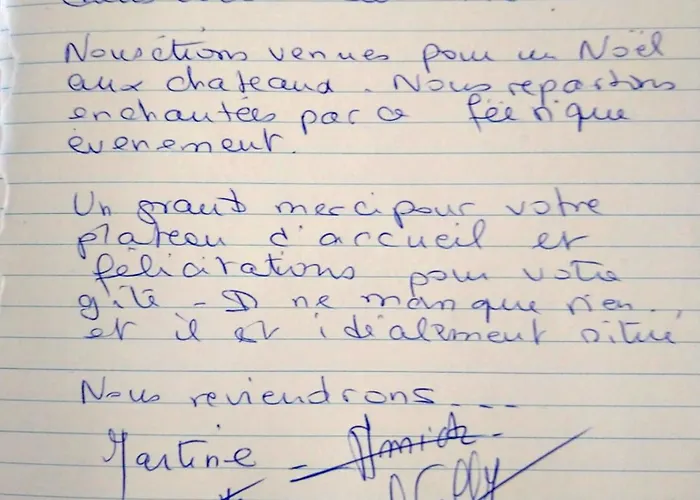 Nous étions venues pour un Noël
aux chateaux. Nous repartons
enchantées par ce féérique
évenement.
Un grand merci pour votre
plateau d'accueil et
félicitations pour votre
gîte - Il ne manque rien.
et il est idéalement situé
Nous reviendrons ---
Martine -